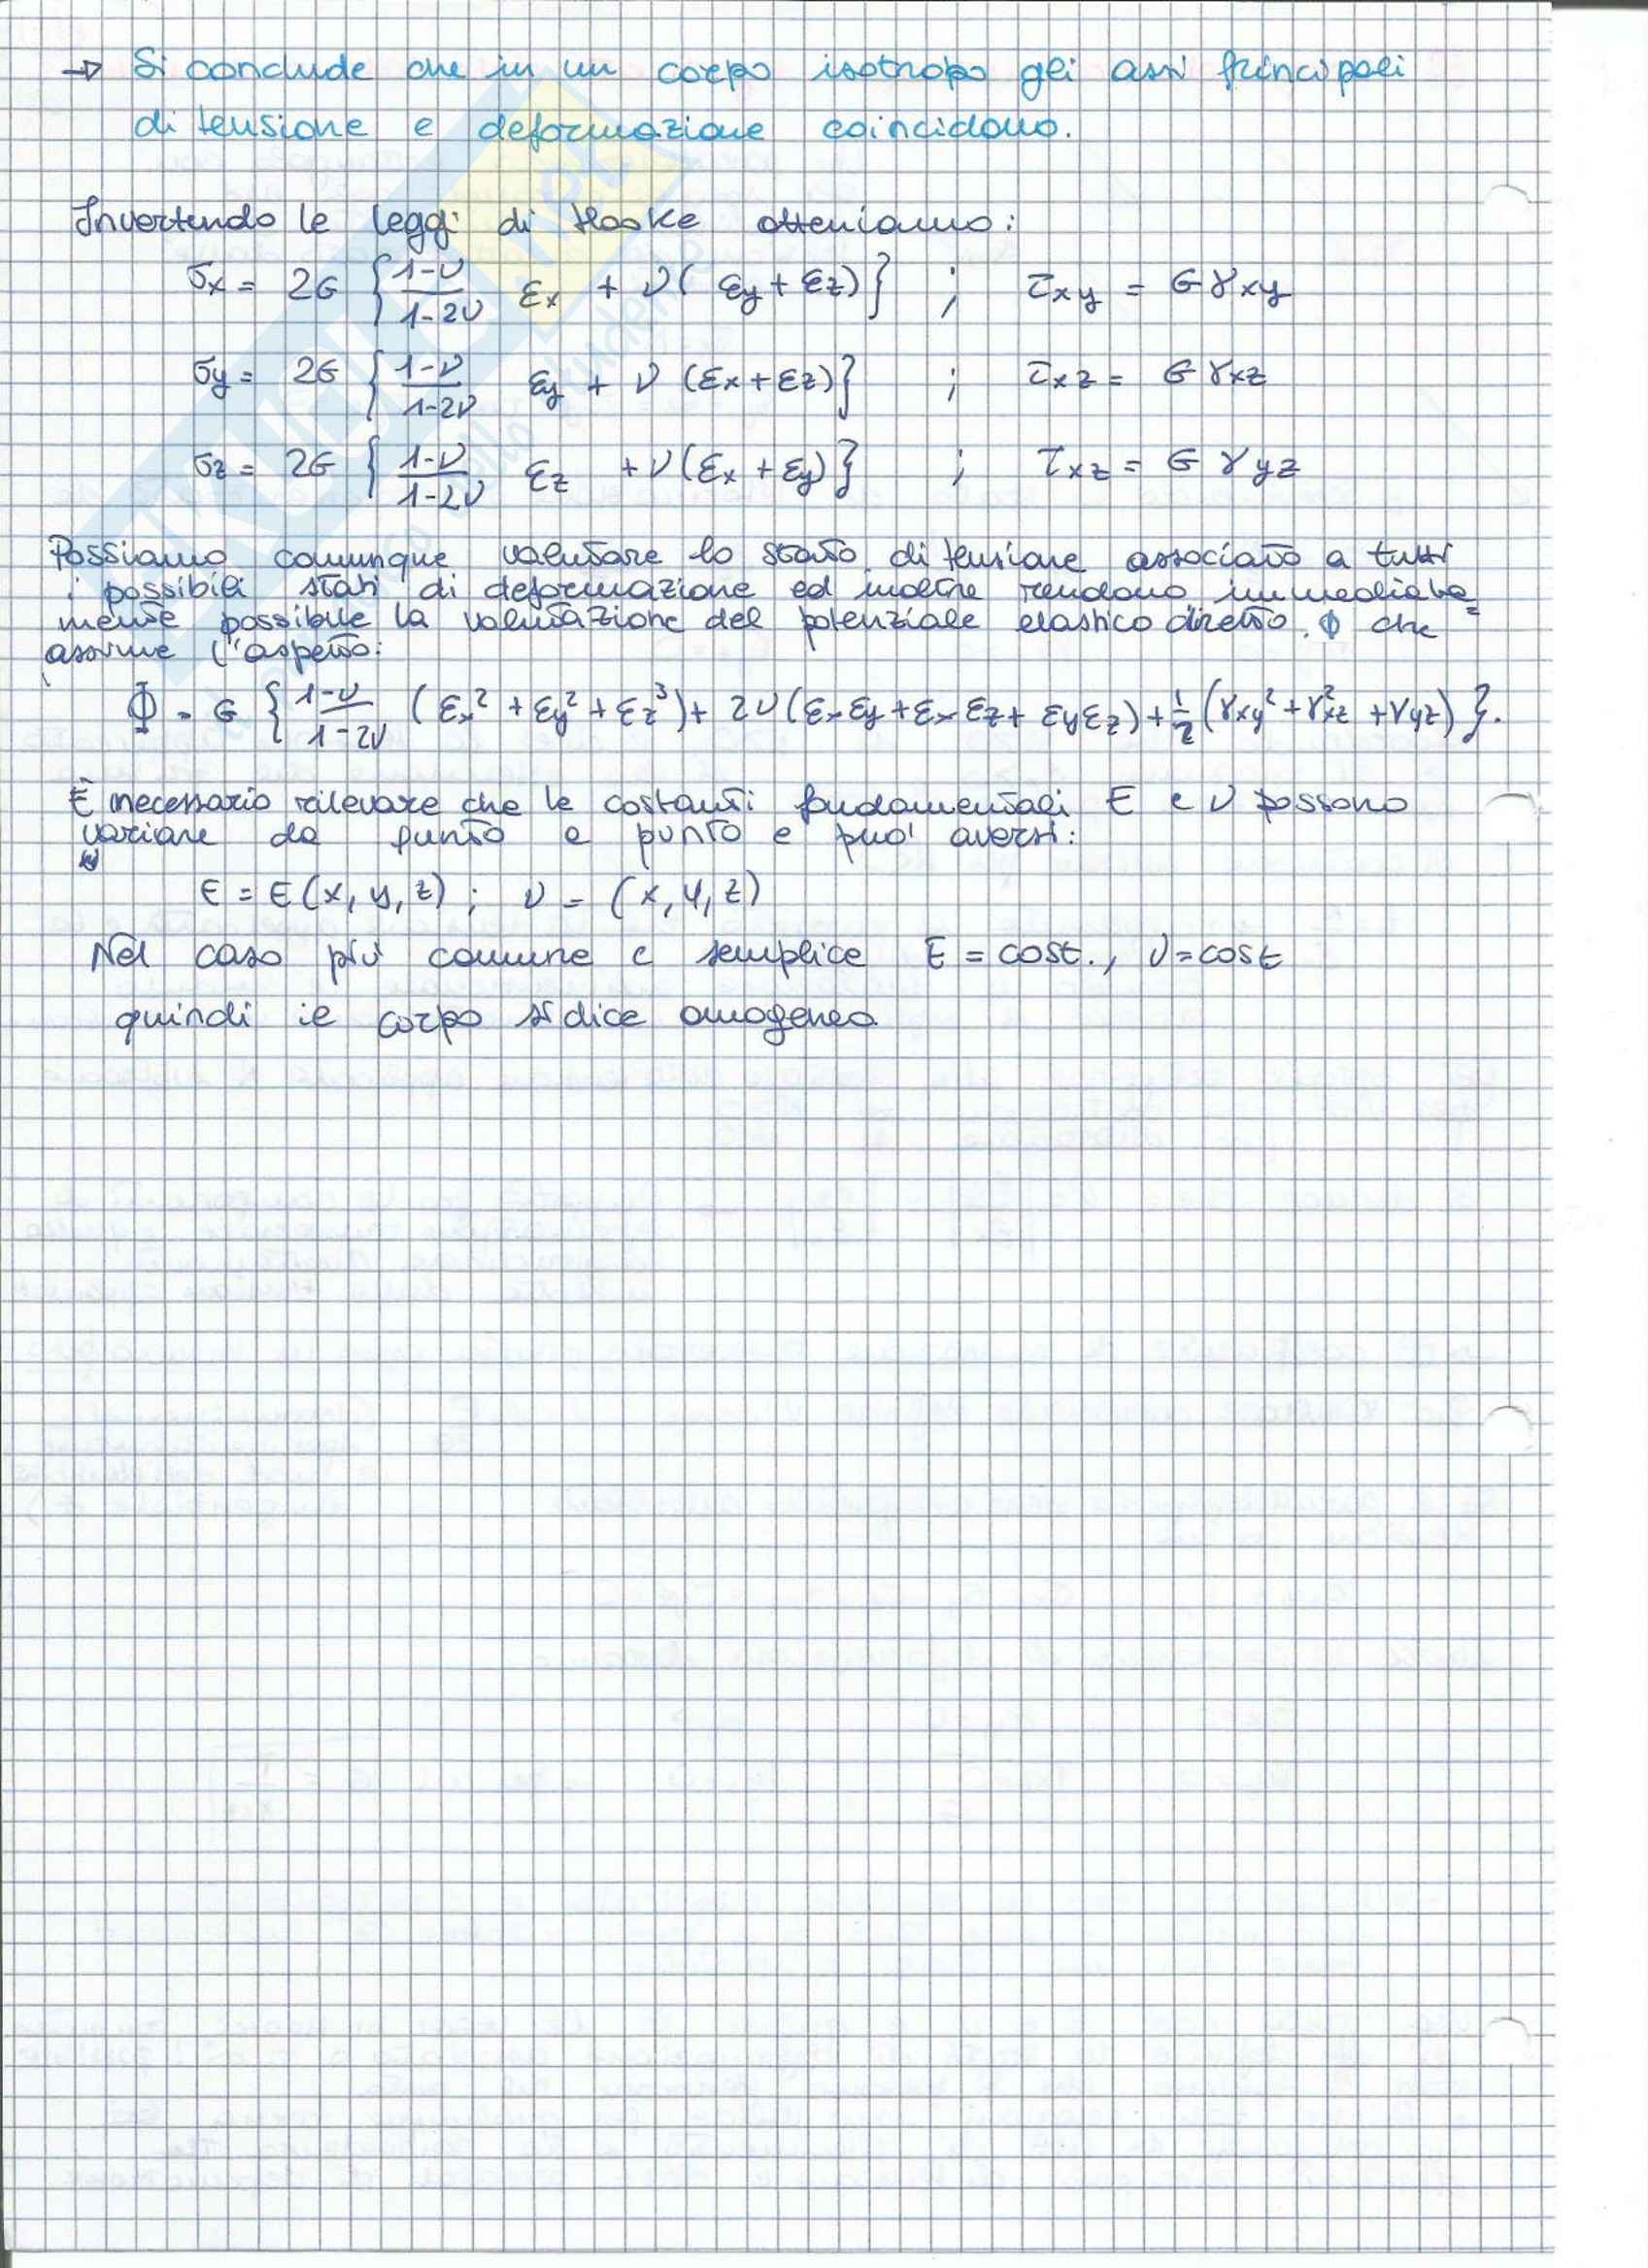 → Si conclude che in un corpo isotropo gli assi principali
di tensione e deformazione coincidono.
Invertendo le leggi di Hooke otteniamo:
σx = 2G { 1-ν / 1-2ν εx + ν( εy + εz) } ; τxy = G γxy
σy = 2G { 1-ν / 1-2ν εy + ν (εx + εz) } ; τxz = G γxz
σz = 2G { 1-ν / 1-2ν εz + ν (εx + εy) } ; τxz = G γyz
Possiamo comunque valutare lo stato di tensione associato a tutti
i possibili stati di deformazione ed inoltre rendono immediata=
mente possibile la valutazione del potenziale elastico diretto, Φ che
assume l'aspetto:
Φ = G { 1-ν / 1-2ν (εx² + εy² + εz³) + 2ν (εx εy + εx εz + εy εz) + 1/2 (γxy² + γxz² + γyz) }.
È necessario rilevare che le costanti fondamentali E e ν possono
variare da punto a punto e può aversi:
E = E(x, y, z) ; ν = (x, y, z)
Nel caso più comune e semplice E = cost., ν = cost
quindi il corpo si dice omogeneo